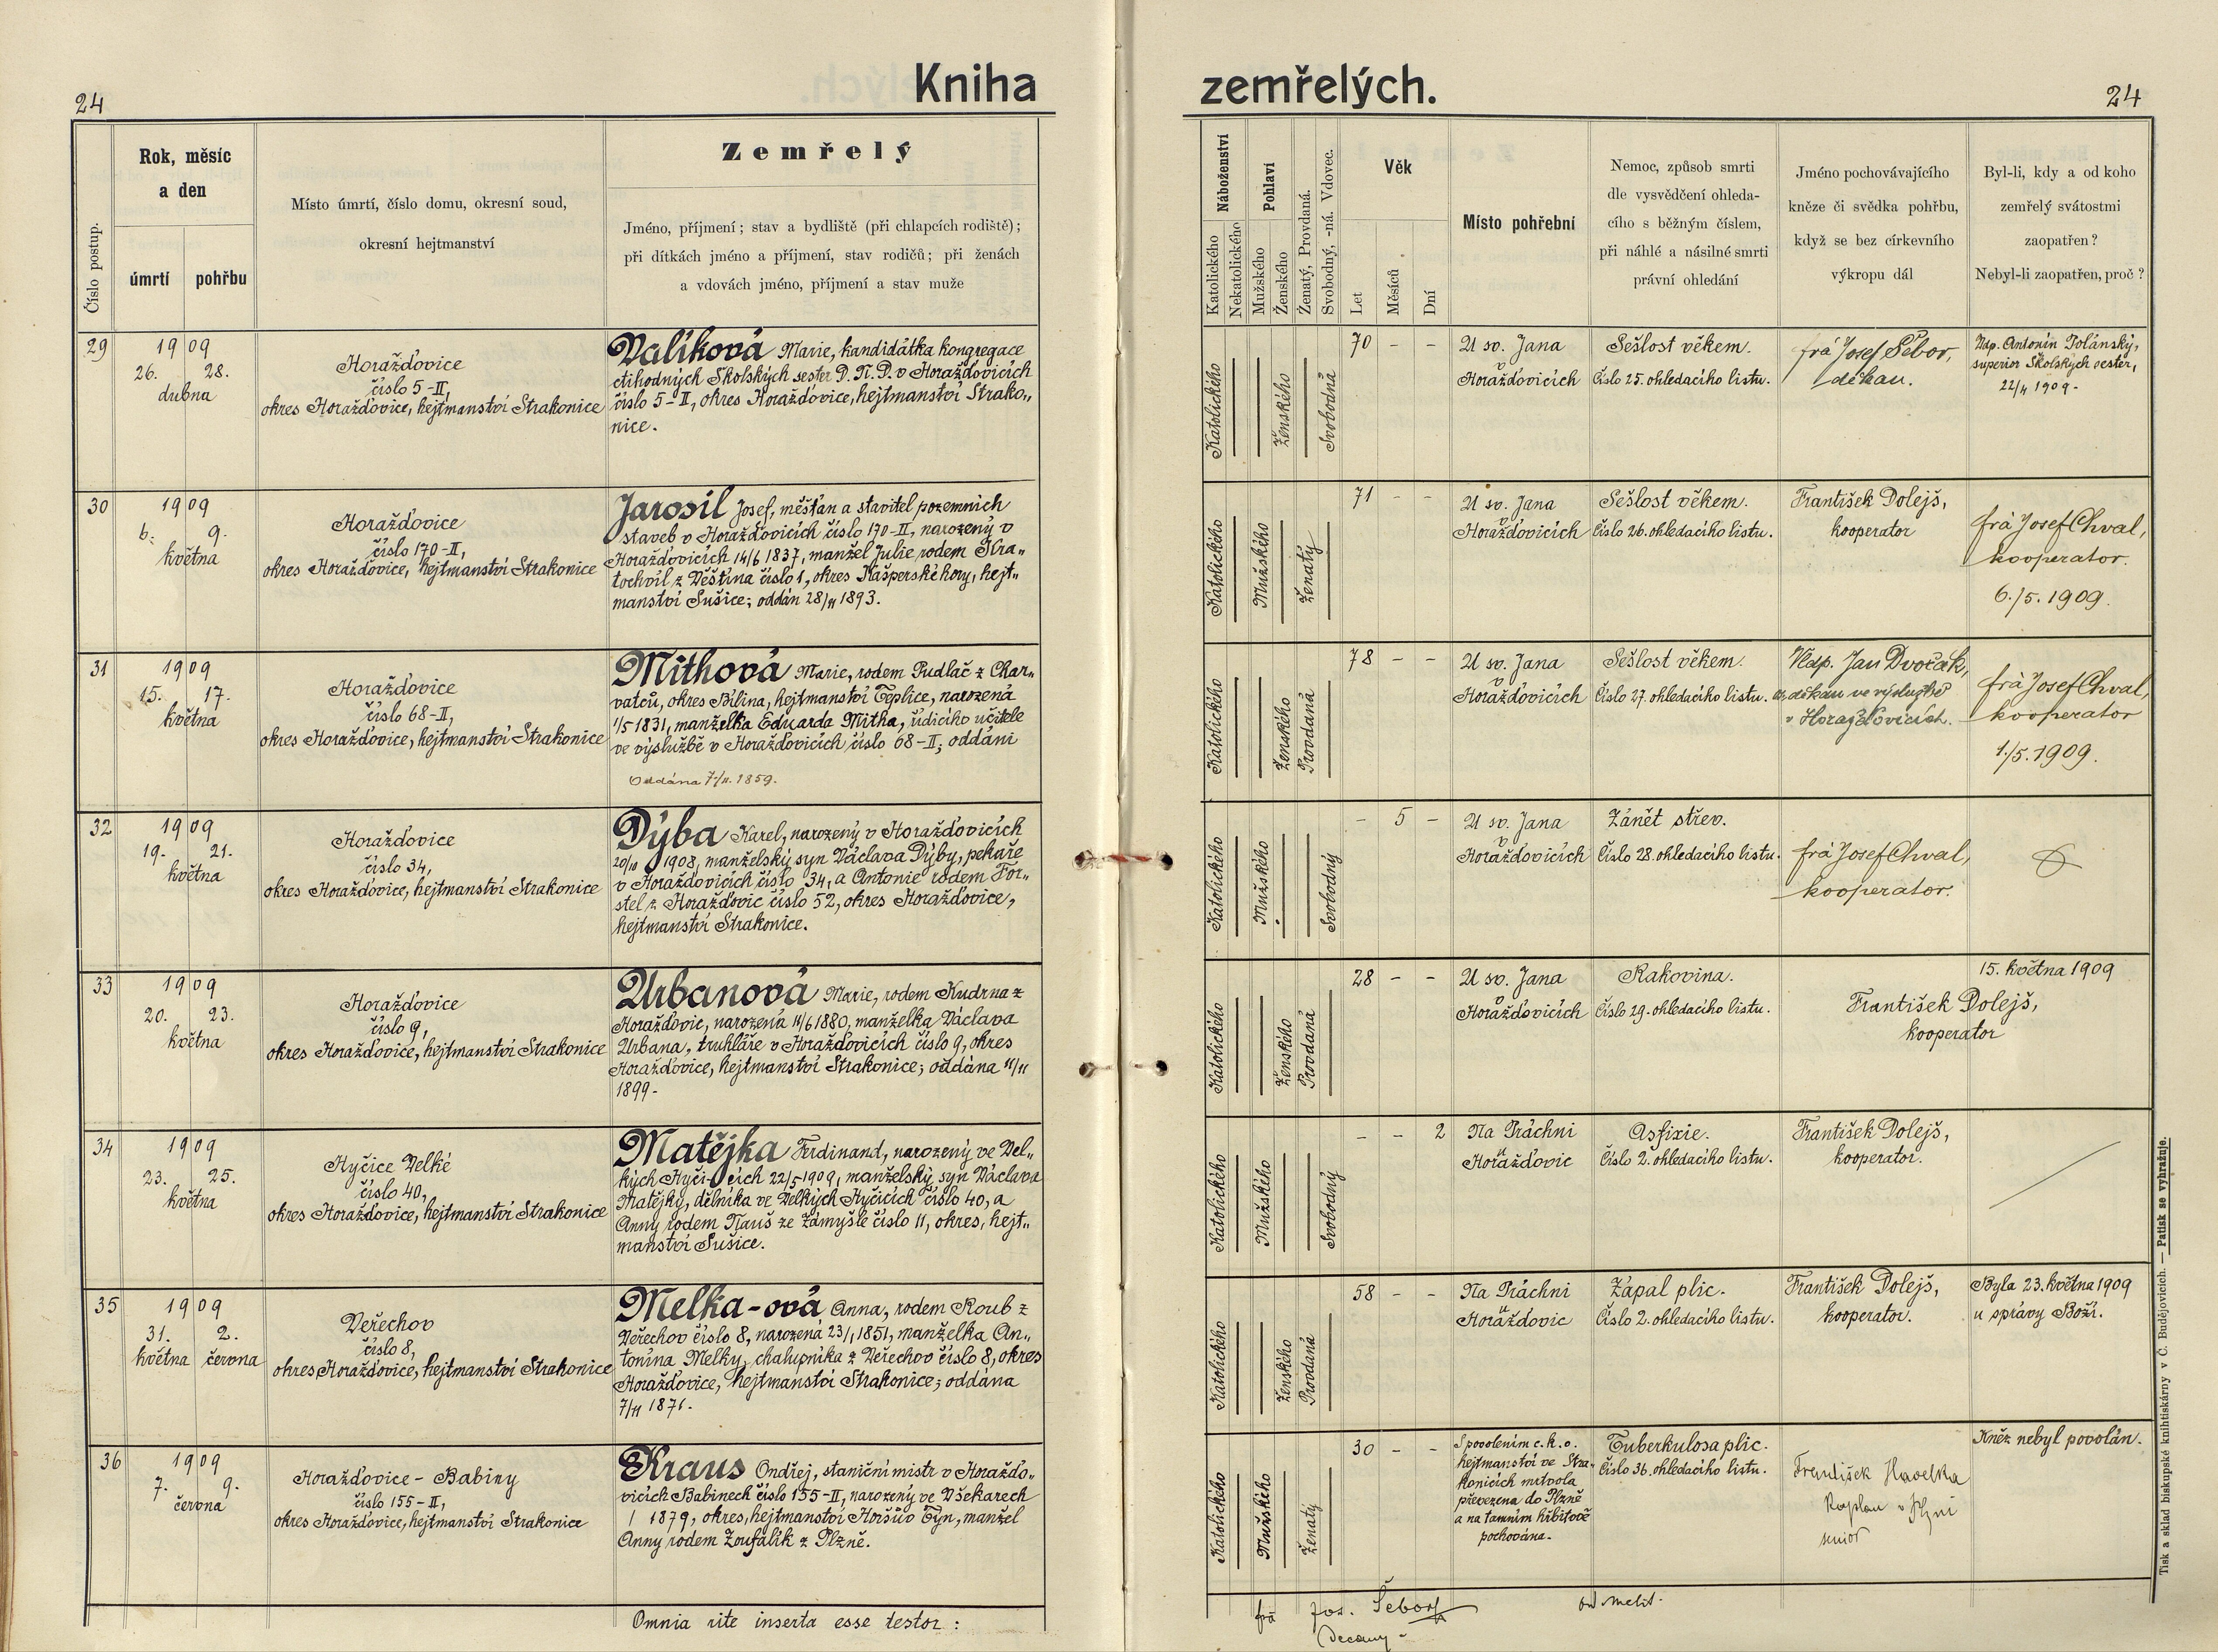 24
Kniha
zemřelých.
24
Číslo postup.
Rok, měsíc
a den
úmrtí
pohřbu
Místo úmrtí, číslo domu, okresní soud,
okresní hejtmanství
Zemřelý
Jméno, příjmení; stav a bydliště (při chlapcích rodiště);
při dítkách jméno a příjmení, stav rodičů; při ženách
a vdovách jméno, příjmení a stav muže
Náboženství
Katolického
Nekatolického
Pohlaví
Mužského
Ženského
Ženatý, Provdaná.
Svobodný, -ná. Vdovec.
Věk
Let
Měsíců
Dní
Místo pohřební
Nemoc, způsob smrti
dle vysvědčení ohleda-
cího s běžným číslem,
při náhlé a násilné smrti
právní ohledání
Jméno pochovávajícího
kněze či svědka pohřbu,
když se bez církevního
výkropu dál
Byl-li, kdy a od koho
zemřelý svátostmi
zaopatřen?
Nebyl-li zaopatřen, proč?
29
1909
26. 28.
dubna
Horažďovice
číslo 5-II,
okres Horažďovice, hejtmanství Strakonice
Valíková Marie, kandidátka kongregace
ctihodných Školských sester D. N. D. v Horažďovicích
číslo 5-II, okres Horažďovice, hejtmanství Strako„
nice.
Katolického
Ženského
Svobodná
70 - -
U sv. Jana
v
Horažďovicích
Sešlost věkem.
Číslo 25. ohledacího listu.
frá Josef Šebor,
děkan.
Ndp. Antonín Polánský,
superior Školských sester,
22/4 1909-
30
1909
6. 9.
května
Horažďovice
číslo 170-II,
okres Horažďovice, hejtmanství Strakonice
Jarosil Josef, měšťan a stavitel pozemních
staveb v Horažďovicích číslo 170-II, narozený v
Horažďovicích 14/6 1837, manžel Julie rodem Kra„
tochvíl z Děštína číslo 1, okres Kašperské hory, hejt„
manství Sušice; oddán 28/11 1893.
Katolického
Mužského
Ženatý
71 - -
U sv. Jana
v
Horažďovicích
Sešlost věkem.
Číslo 26. ohledacího listu.
František Dolejš,
kooperator
frá Josef Chval,
kooperator.
6./5. 1909.
31
1909
15. 17.
května
Horažďovice
číslo 68-II,
okres Horažďovice, hejtmanství Strakonice
Mithová Marie, rodem Pudlač z Char„
vatců, okres Bílina, hejtmanství Teplice, narozená
1/5 1831, manželka Eduarda Mitha, řídícího učitele
ve výslužbě v Horažďovicích číslo 68-II; oddáni
Oddána 7/11. 1859.
Katolického
Ženského
Provdaná
78 - -
U sv. Jana
v
Horažďovicích
Sešlost věkem.
Číslo 27. ohledacího listu.
Vldp. Jan Dvořák,
děkan ve výslužbě
v Horažďovicích.
frá Josef Chval,
kooperator
1./5. 1909.
32
1909
19. 21.
května
Horažďovice
číslo 34,
okres Horažďovice, hejtmanství Strakonice
Dýba Karel, narozený v Horažďovicích
20/12 1908, manželský syn Václava Dýby, pekaře
v Horažďovicích číslo 34, a Antonie rodem For„
stel z Horažďovic číslo 52, okres Horažďovice,
hejtmanství Strakonice.
Katolického
Mužského
Svobodný
- 5 -
U sv. Jana
v
Horažďovicích
Zánět střev.
Číslo 28. ohledacího listu.
frá Josef Chval,
kooperator.
33
1909
20. 23.
května
Horažďovice
číslo 9,
okres Horažďovice, hejtmanství Strakonice
Urbanová Marie, rodem Kudrna z
Horažďovic, narozená 11/6 1880, manželka Václava
Urbana, truhláře v Horažďovicích číslo 9, okres
Horažďovice, hejtmanství Strakonice; oddána 11/11
1899-
Katolického
Ženského
Provdaná
28 - -
U sv. Jana
v
Horažďovicích
Rakovina.
Číslo 29. ohledacího listu.
15. května 1909
František Dolejš,
kooperator
34
1909
23. 25.
května
Hyčice Velké
číslo 40,
okres Horažďovice, hejtmanství Strakonice
Matějka Ferdinand, narozený ve Vel„
kých Hyčicích 22/5 1909, manželský syn Václava
Matějky, dělníka ve Velkých Hyčicích číslo 40, a
Anny rodem Nauš ze Zamyšle číslo 11, okres, hejt„
manství Sušice.
Katolického
Mužského
Svobodný
- - 2
Na Práchni
u
Horažďovic
Asfixie.
Číslo 2. ohledacího listu.
František Dolejš,
kooperator.
35
1909
31. 2.
května června
Veřechov
číslo 8,
okres Horažďovice, hejtmanství Strakonice
Melka-ová Anna, rodem Roub z
Veřechov číslo 8, narozená 23/1 1851, manželka An„
tonína Melky, chalupníka z Veřechov číslo 8, okres
Horažďovice, hejtmanství Strakonice; oddána
7/11 1871.
Katolického
Ženského
Provdaná
58 - -
Na Práchni
u
Horažďovic
Zápal plic.
Číslo 2. ohledacího listu.
František Dolejš,
kooperator.
Byla 23. května 1909
u správy Boží.
36
1909
7. 9.
června
Horažďovice - Babiny
číslo 155-II,
okres Horažďovice, hejtmanství Strakonice
Kraus Ondřej, staniční mistr v Horažďo„
vicích Babinech číslo 155-II, narozený ve Všekarech
/ 1879, okres, hejtmanství Horšův Týn, manžel
Anny rodem Zoufalík z Plzně.
Katolického
Mužského
Ženatý
30 - -
S povolením c. k. o.
hejtmanství ve Stra„
konicích mrtvola
převezena do Plzně
a na tamním hřbitově
pochována.
Tuberkulosa plic.
Číslo 36. ohledacího listu.
František Havelka
Kaplan v Plzni
senior
Kněz nebyl povolán.
Omnia rite inserta esse testor:
frá Jos. Šebor
Decany
Tisk a sklad biskupské knihtiskárny v Č. Budějovicích. — Patisk se vyhražuje.